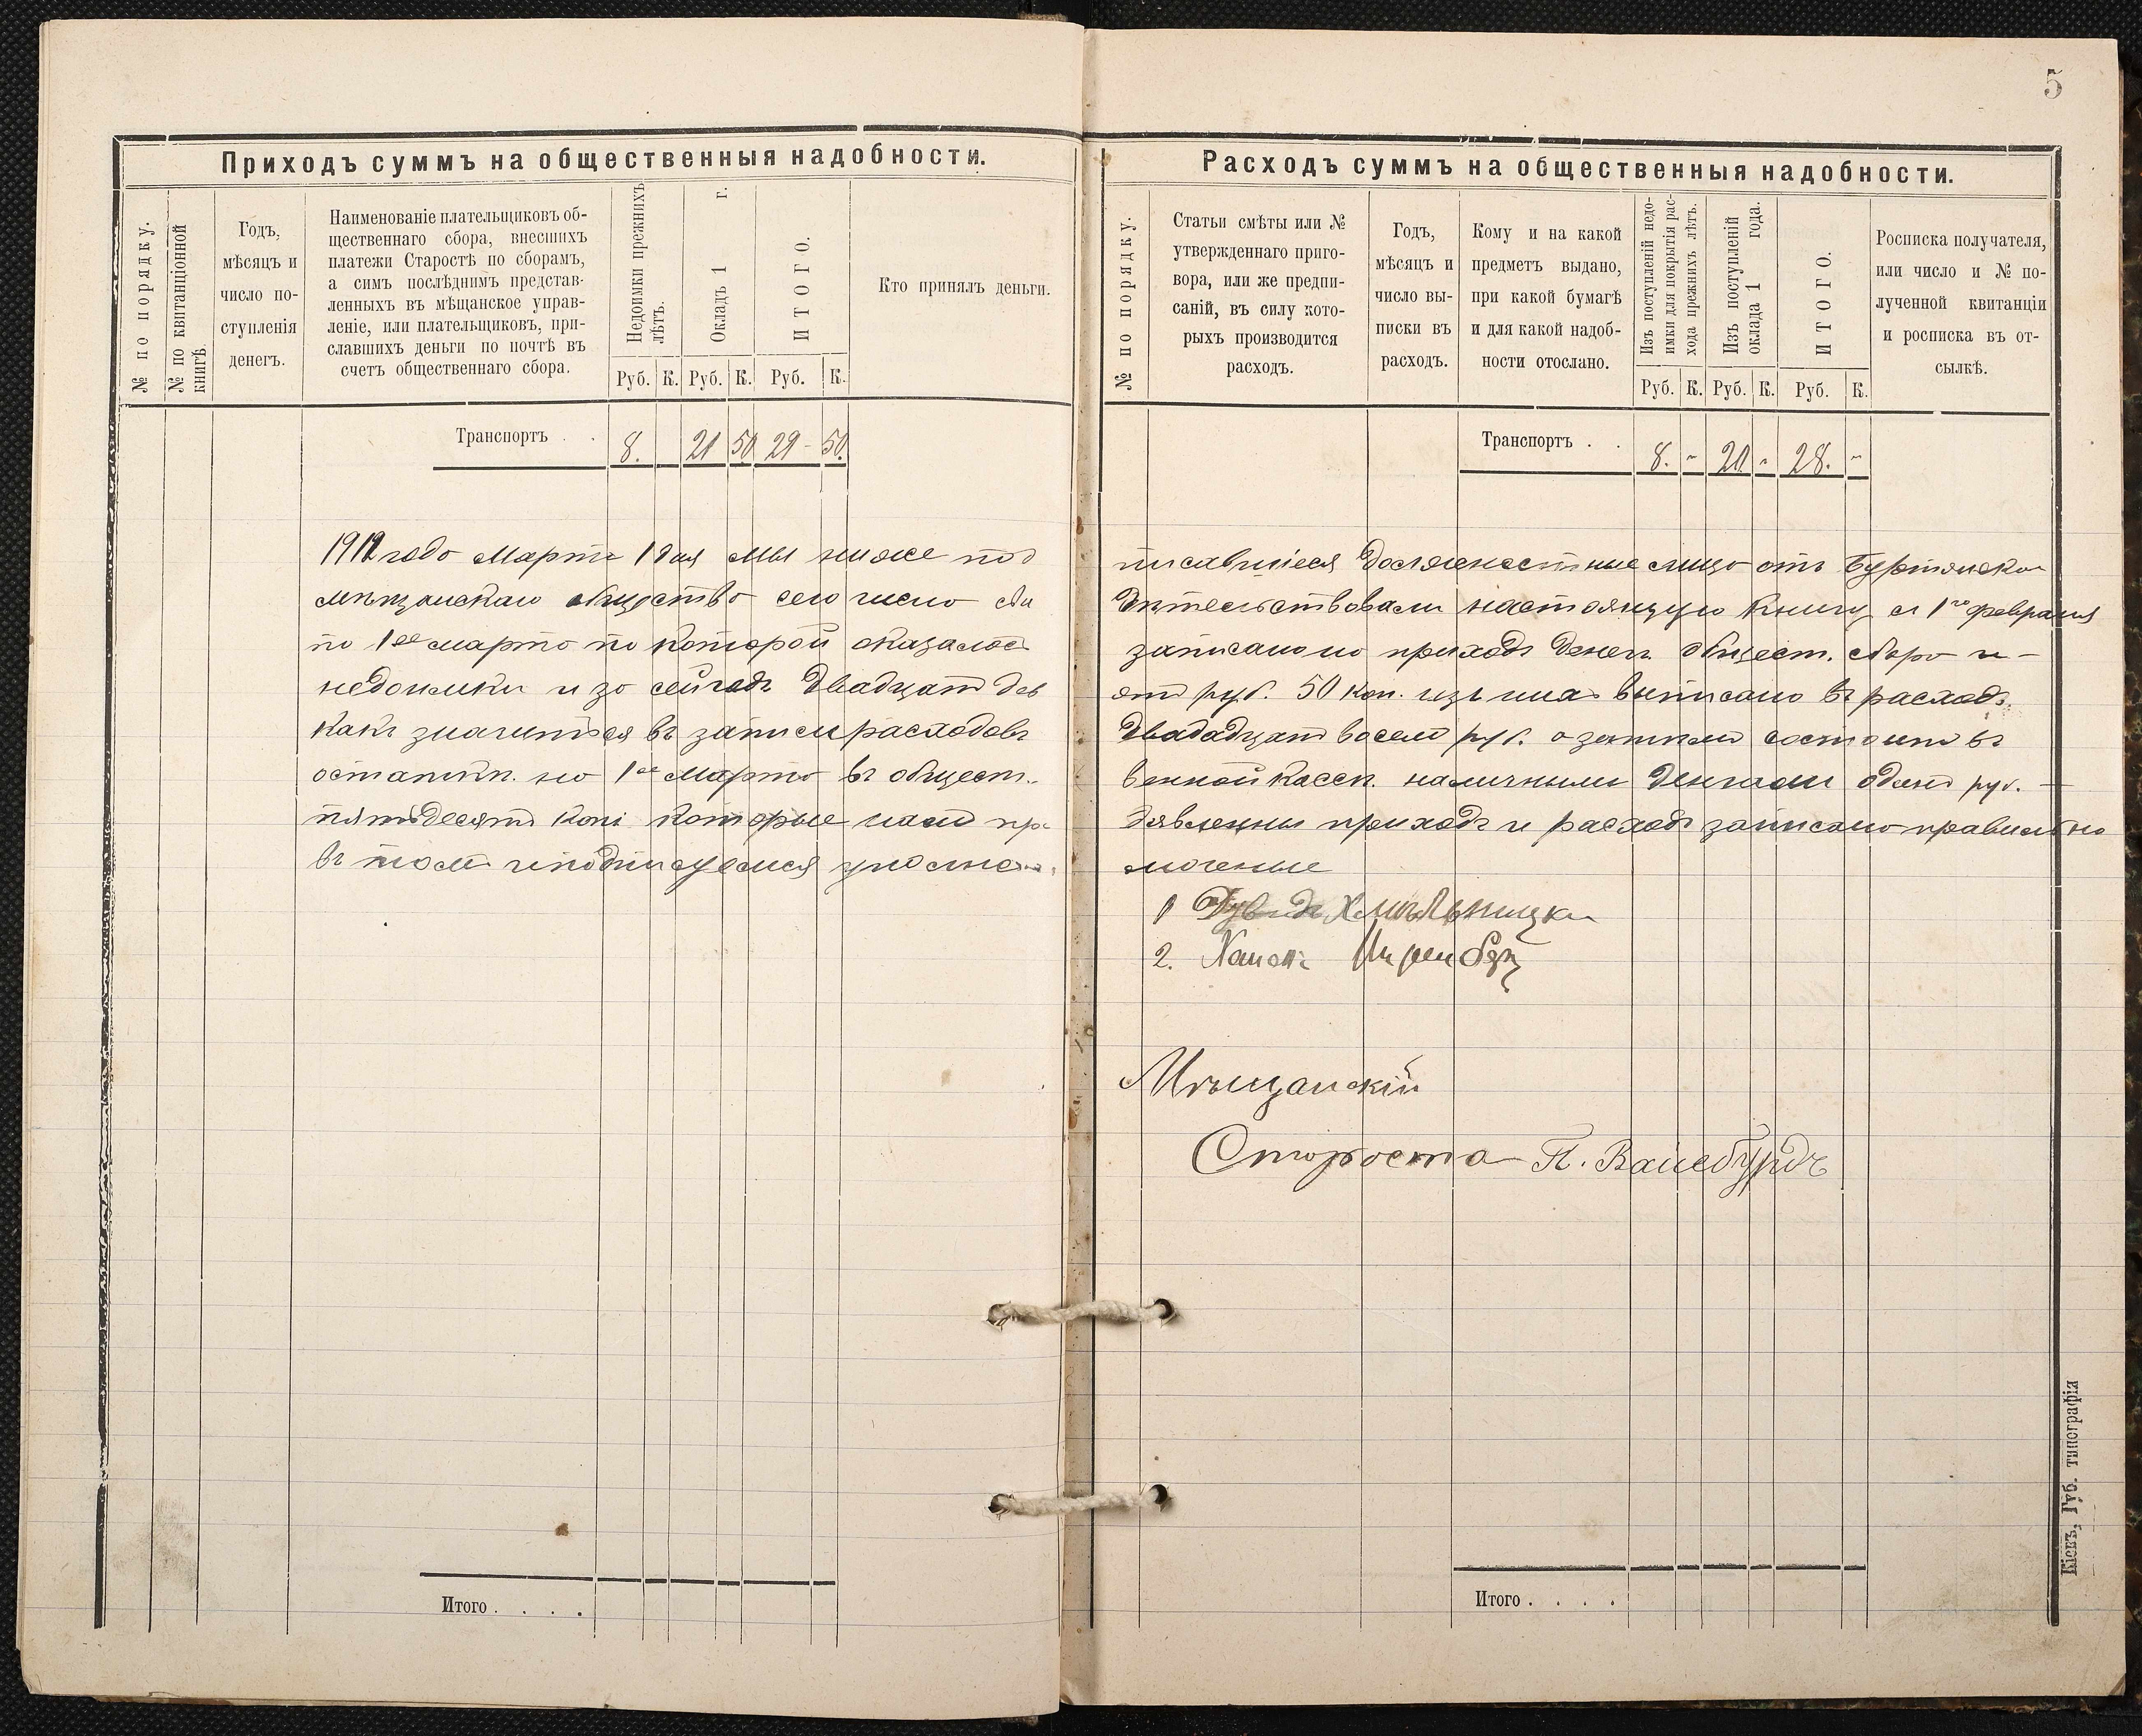 5
Приходъ суммъ на общественныя надобности.
№ по порядку.
№ по квитанціонной
книгѣ.
Годъ,
мѣсяцъ и
число по-
ступленія
денегъ.
Наименованіе плательщиковъ об-
щественнаго сбора, внесшихъ
платежи Старостѣ по сборамъ,
а симъ послѣднимъ представ-
ленныхъ въ мѣщанское управ-
леніе, или плательщиковъ, при-
славшихъ деньги по почтѣ въ
счетъ общественнаго сбора.
Недоимки прежнихъ
лѣтъ.
Окладъ 1 г.
ИТОГО.
Кто принялъ деньги.
Руб. К. Руб. К. Руб. К.
Транспортъ . . 8. 21 50 29 - 50.
1912 года Марта 1 дня мы ниже под
мѣщанскаго общества сего число сви
по 1ое марта по которой оказалось
недоимки и за сей годъ двадцат дев
какъ значится въ записи расходовъ
остатки. на 1ое Марта въ общест-
пятьдесятъ коп. которые нами пр
въ том и подписуемся уполно
Расходъ суммъ на общественныя надобности.
№ по порядку.
Статьи смѣты или №
утвержденнаго приго-
вора, или же предпи-
саній, въ силу кото-
рыхъ производится
расходъ.
Годъ,
мѣсяцъ и
число вы-
писки въ
расходъ.
Кому и на какой
предметъ выдано,
при какой бумагѣ
и для какой надоб-
ности отослано.
Изъ поступленій недо-
имки для покрытія рас-
хода прежнихъ лѣтъ.
Изъ поступленій
оклада 1 года.
ИТОГО.
Росписка получателя,
или число и № по-
лученной квитанціи
и росписка въ от-
сылкѣ.
Руб. К. Руб. К. Руб. К.
Транспортъ . . 8. - 20 - 28. -
писавшіеся должностные лица отъ
дѣтельствовали настоящую книгу съ 1го февраля
записано на приходъ денег общест. сбора и-
ят руб. 50 коп. изъ них выписано въ расходъ
двадцат восем руб. а затем состоит въ
венной кассѣ. наличными денгами один руб. -
приходъ и расходъ записано правильно
моченые
1 Хмѣльницки
2.
Мѣщанскій
Староста П. Вайсбурдъ
Итого . . . .
Итого . . . .
Кіевъ, Губ. типографія